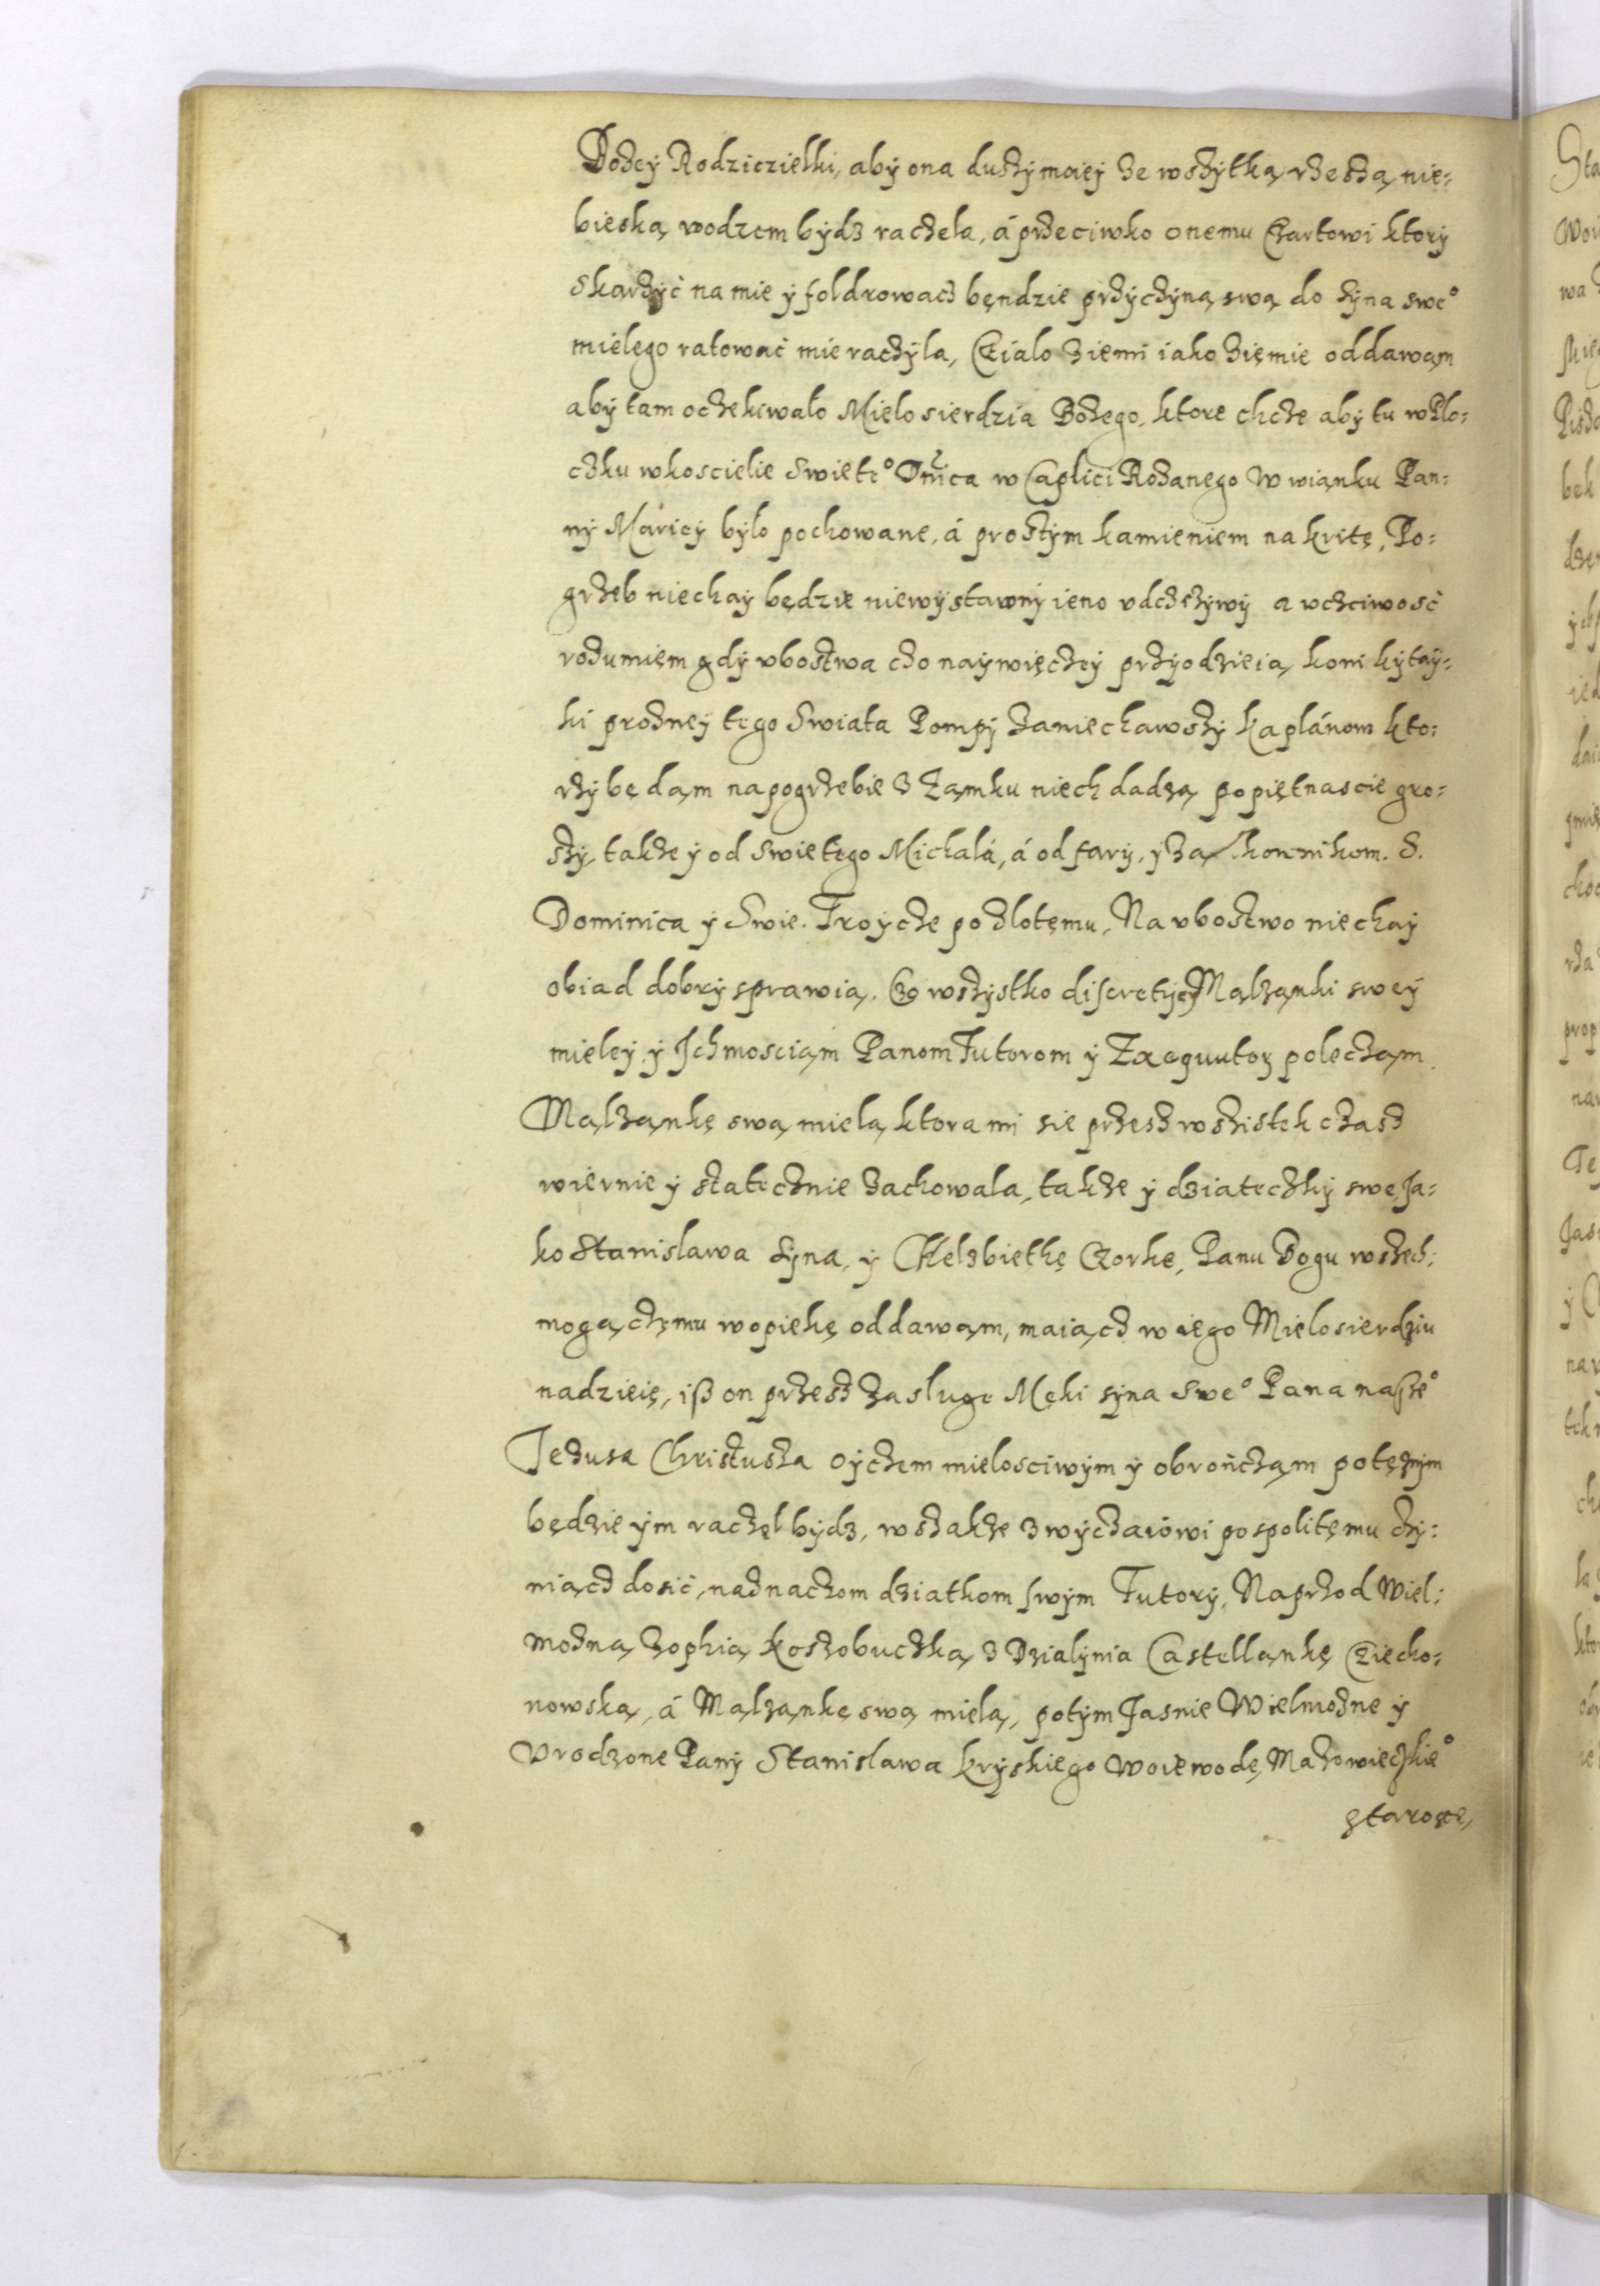 Bożey Rodziczielki, aby ona dużÿ moiey ze wszÿtką rzeszą nie⸗
bieską wodzem bÿdz raczela, á przeciwko onemu Czartowi ktorÿ
skarzÿć na mie ÿ foldrowacz będzie przÿczÿną swą do sÿna sweº
mielego ratować mie raczÿla, Cialo ziemi iako ziemie oddawąm
abÿ tam oczekiwalo Mielosierdzia Bozego, ktore chcze abÿ tu w Plo⸗
czku w koscielie Swieteº Dnica w Caplici Rożanego W wianku Pan⸗
nÿ Máriey bÿlo pochowane, á prostÿm kamieniem nakrite, Po⸗
grzeb niechaÿ będzie niewÿstawnÿ ieno vdczżÿwÿ a vczciwosć
rozumięm gdÿ vbostwa czo naÿwięczeÿ przÿodzieią koni kÿtaÿ⸗
ki prozneÿ tego Swiata Pompÿ zaniechawszÿ kaplánom kto⸗
rzÿ będąm na pogrzebie z Zamku niech dadzą po piętnascie gro⸗
szÿ, takze ÿ od Swietego Michalá, á od farÿ, ÿ zakonnikom. S.
Dominica ÿ Swie. Troÿcze po zlotemu, Na vbostwo niechaÿ
obiad dobrÿ sprawią. Czo wszÿstko discretiey Malząnki sweÿ
mieleÿ ÿ Jchmosciąm Panom Tutorom ÿ Exequutoꝝ polecząm
Malząnkę swą mielą ktora mi sie przesz wszistek czasz
wiernie ÿ statecznie zachowala, takze ÿ dziateczkÿ swe, Ja⸗
ko Stanislawa Sÿna, ÿ Helzbietkę Czorkę, Panu Bogu wszech⸗
mogączemu w opiekę oddawąm, maiącz w iego Mielosierdziu
nadzieię, iß on przesz zasluge Męki sÿna Sweº Pana naszeº
Jezusa Christusza Oÿczem mielosciwÿm ÿ obrończąm potężnÿm
będzie ÿm raczęl bÿdz, wszakze zwÿczaiowi pospolitemu czÿ⸗
niącz dosić, naznaczom dziatkom swÿm Tutorÿ, Naprzod Wiel⸗
mozną Zophią Koszobuczką z Dzialÿnia Castellankę Ciecho⸗
nowską, á Malząnkę swą mielą, potÿm Jasnie Wielmozne ÿ
Vrodzone Panÿ Stanislawa Krÿskiego Woiewodę Mazowieczkieº
starostę,